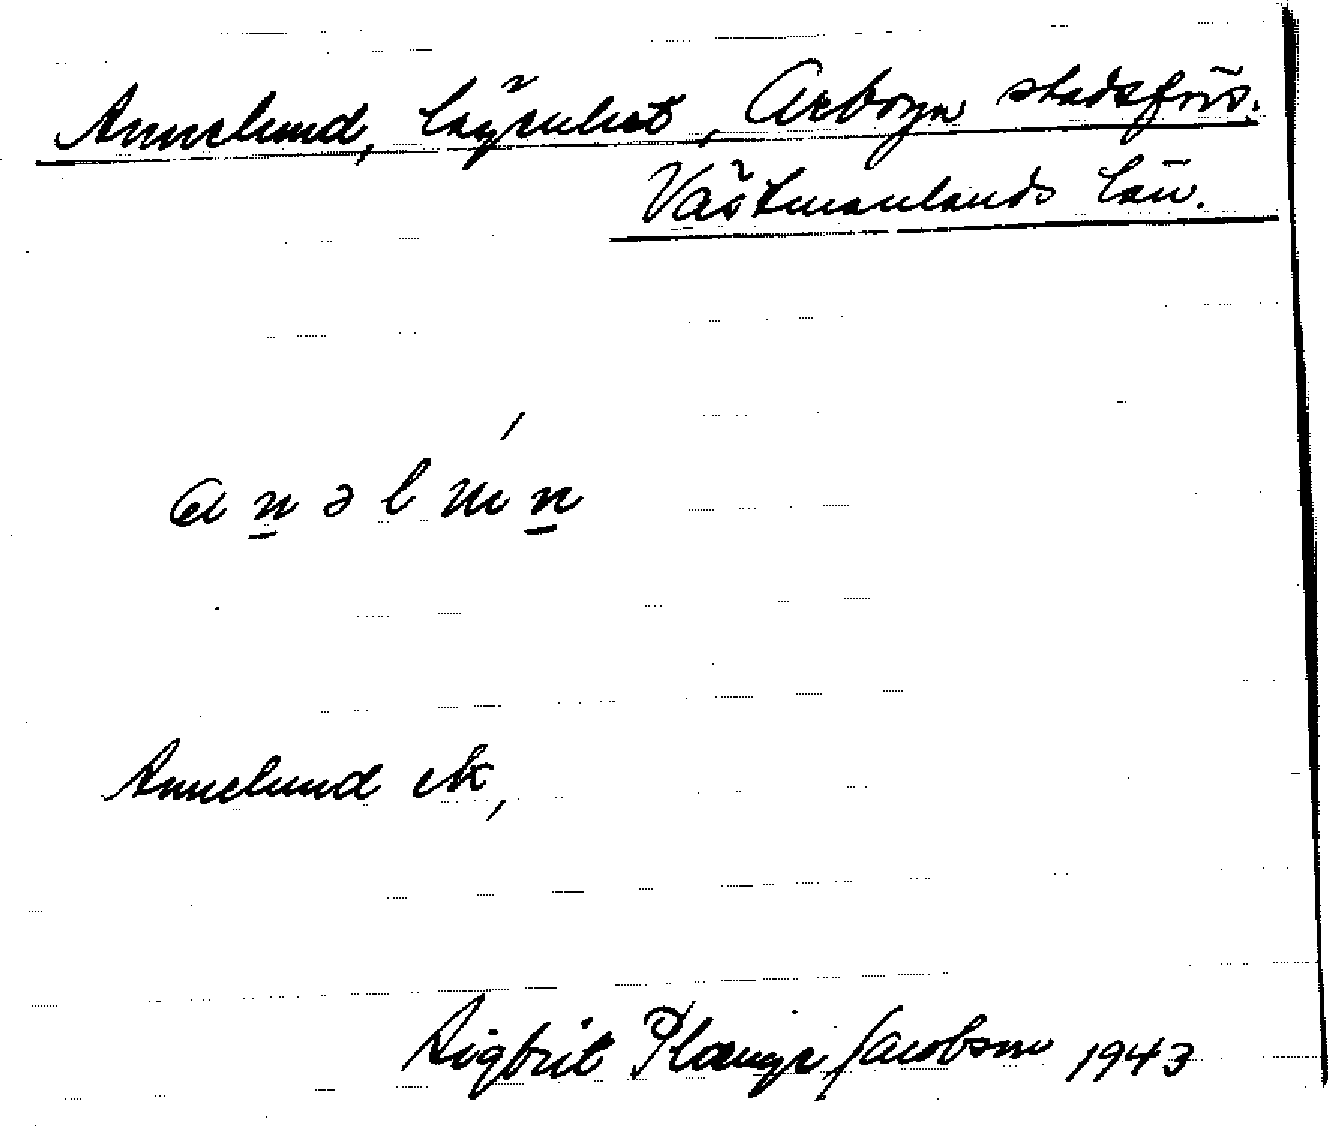 Annelund, lägenhet, Arboga stadsförs.
Västmanlands län.
a n ə l u n
Annelund ek,
Sigbrit Plænge Jacobson 1943